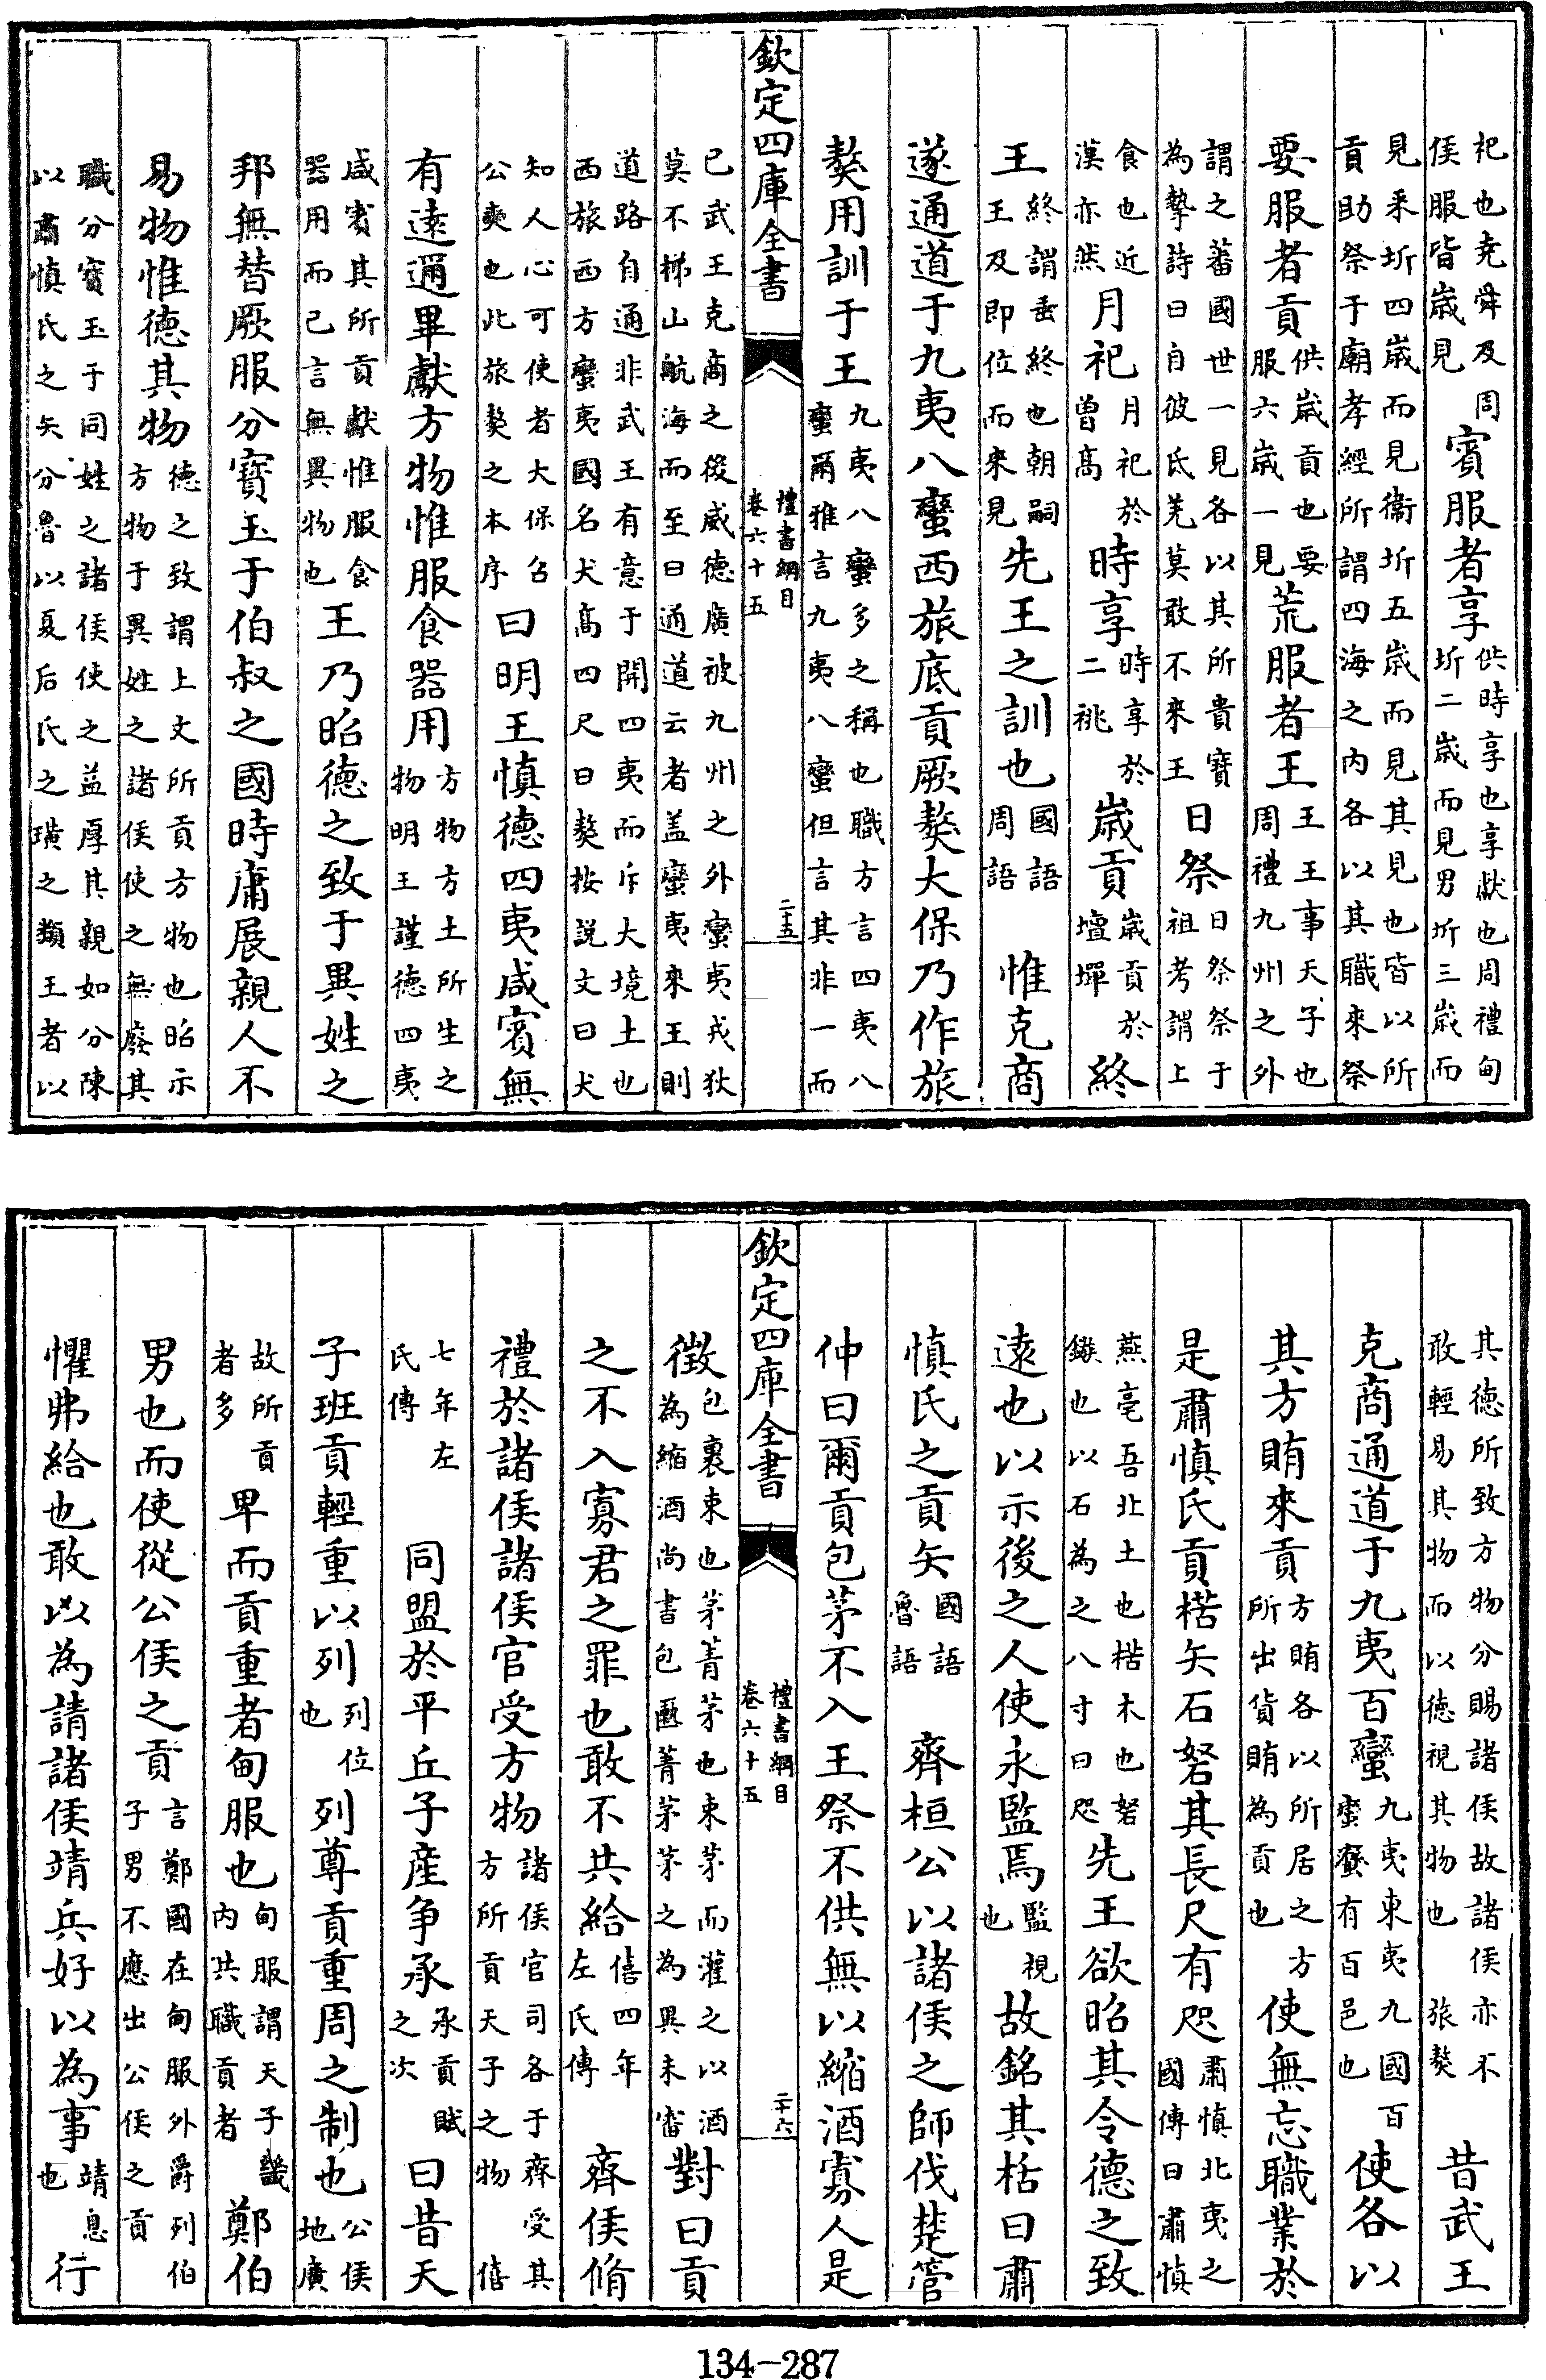 祀也堯舜及周侯服皆嵗見賓服者享供時享也享獻也周禮甸圻二嵗而見男圻三嵗而
見釆圻四嵗而見衞圻五嵗而見其見也皆以所貢助祭于廟孝經所謂四海之内各以其職來祭
要服者貢供嵗貢也要服六嵗一見荒服者王王王事天子也周禮九州之外
謂之蕃國世一見各以其所貴寳為摯詩曰自彼氐羌莫敢不來王日祭日祭祭于祖考謂上
食也近漢亦然月祀月祀於曾髙時享時享於二祧嵗貢嵗貢於壇墠終
王終謂垂終也朝嗣王及即位而來見先王之訓也國語周語 惟克商
遂通道于九夷八蠻西旅底貢厥獒大保乃作旅
獒用訓于王九夷八蠻多之稱也職方言四夷八蠻爾雅言九夷八蠻但言其非一而
欽定四庫全書 禮書綱目 卷六十五 二十五
已武王克商之後威德廣被九州之外蠻夷戎狄莫不梯山航海而至曰通道云者盖蠻夷來王則
道路自通非武王有意于開四夷而斥大境土也西旅西方蠻夷國名犬髙四尺曰獒按説文曰犬
知人心可使者大保召公奭也此旅獒之本序曰明王慎德四夷咸賓無
有逺邇畢獻方物惟服食器用方物方土所生之物明王謹德四夷
咸賓其所貢獻惟服食器用而已言無異物也王乃昭德之致于異姓之
邦無替厥服分寳玉于伯叔之國時庸展親人不
易物惟德其物德之致謂上文所貢方物也昭示方物于異姓之諸侯使之無廢其
職分寳玉于同姓之諸侯使之益厚其親如分陳以肅慎氏之矢分魯以夏后氏之璜之類王者以
其德所致方物分賜諸侯故諸侯亦不敢輕易其物而以德視其物也 旅獒 昔武王
克商通道于九夷百蠻九夷東夷九國百蠻蠻有百邑也使各以
其方賄來貢方賄各以所居之方所出貨賄為貢也使無忘職業於
是肅慎氏貢楛矢石砮其長尺有咫肅慎北夷之國傳曰肅慎
燕亳吾北土也楛木也砮鏃也以石為之八寸曰咫先王欲昭其令德之致
逺也以示後之人使永監焉監視也故銘其栝曰肅
慎氏之貢矢國語魯語 齊桓公以諸侯之師伐楚管
仲曰爾貢包茅不入王祭不供無以縮酒寡人是
欽定四庫全書 禮書綱目 卷六十五 二十六
徴包裹束也茅菁茅也束茅而灌之以酒為縮酒尚書包匭菁茅茅之為異未審對曰貢
之不入寡君之罪也敢不共給僖四年左氏傳 齊侯脩
禮於諸侯諸侯官受方物諸侯官司各于齊受其方所貢天子之物 僖
七年左氏傳 同盟於平丘子産争承承貢賦之次曰昔天
子班貢輕重以列列位也列尊貢重周之制也公侯地廣
故所貢者多卑而貢重者甸服也甸服謂天子畿内共職貢者鄭伯
男也而使從公侯之貢言鄭國在甸服外爵列伯子男不應出公侯之貢
懼弗給也敢以為請諸侯靖兵好以為事靖息也行
134-287